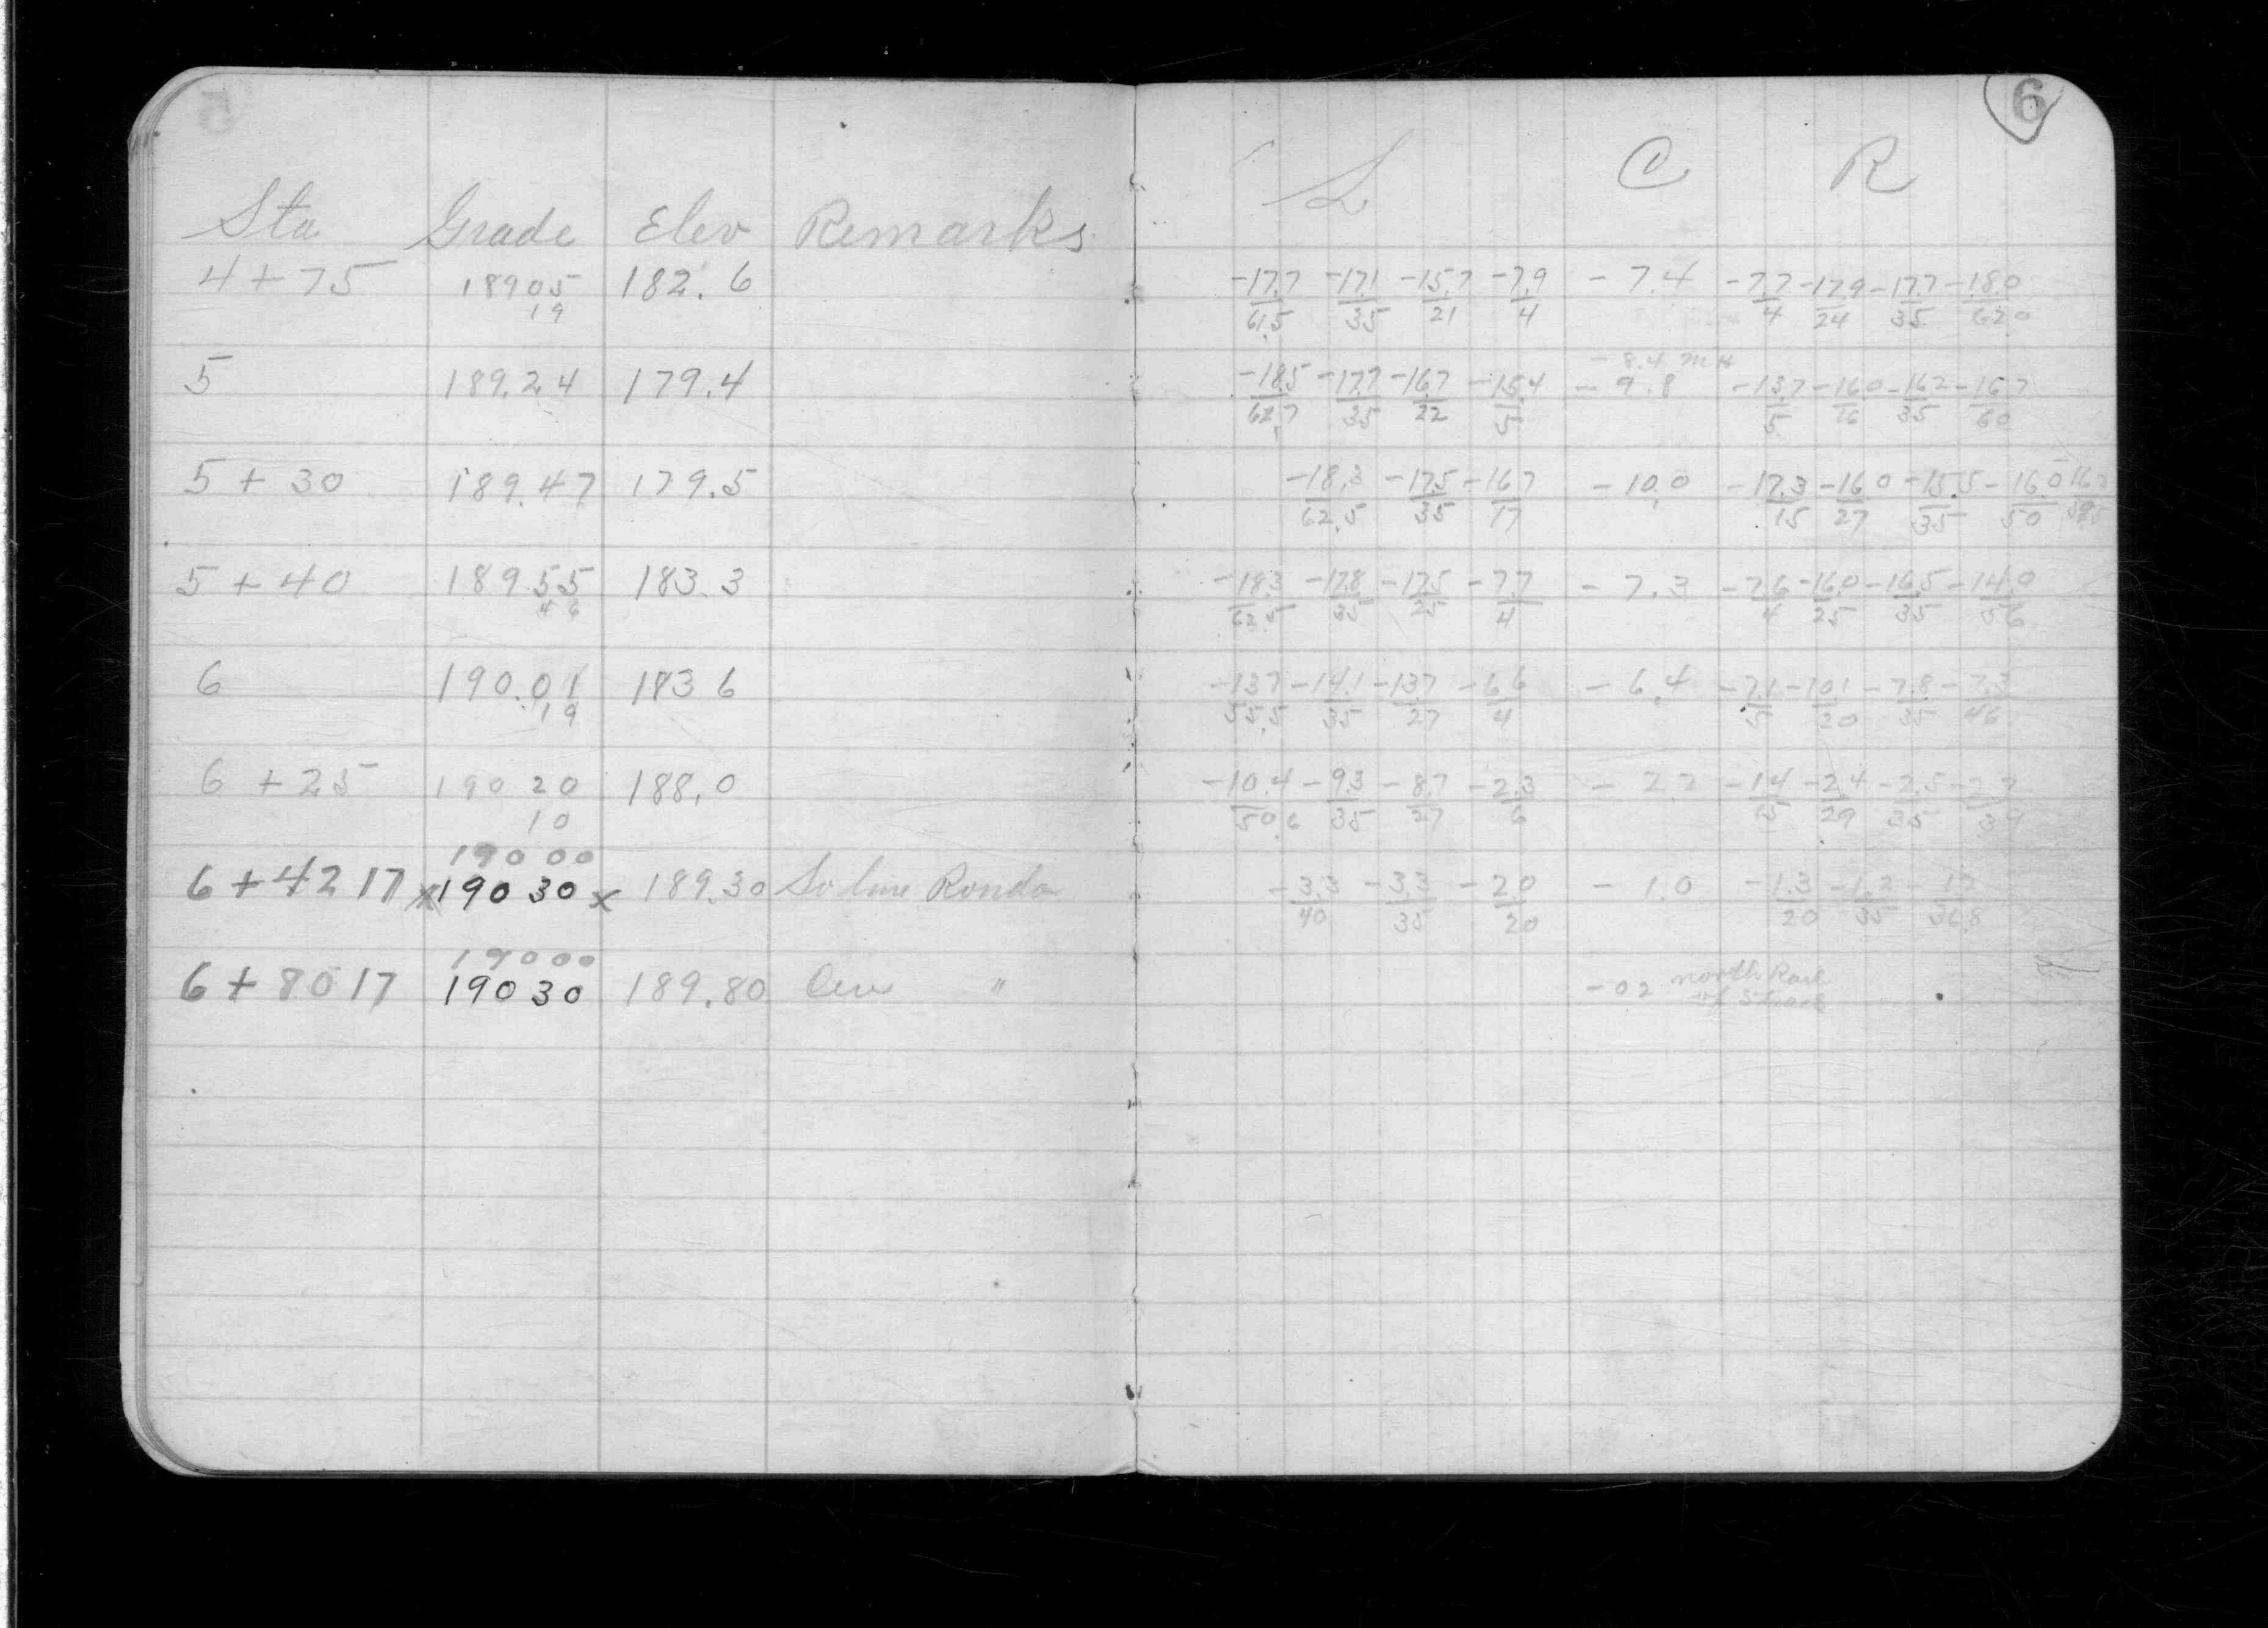 6
Sta Grade Elev Remarks L C R
4+75 189 05 182.6 -17.7 -17.1 -15.7 -7.9 - 7.4 -7.7 -17.9 -17.7 -18.0
19 61.5 35 21 4 4 24 35 62 0
- 8.4 MH
5 189.24 179.4 -18.5 -17.7 -16.7 -15.4 - 9.8 -13.7 -16.0 -16.2 -16.7
62.7 35 22 5 5 16 35 60
5 + 30 189.47 179.5 -18.3 -17.5 -16.7 - 10.0 -17.3 -16.0 -15.5 - 16.0
62.5 35 17 15 27 35 50
5 + 40 189 55 183.3 -18.3 -17.8 -17.5 -7.7 - 7.3 -7.6 -16.0 -16.5 -14.0
4 6 62.5 35 25 4 4 25 35 56
6 190.01 183 6 -13.7 -14.1 -13.7 -6.6 - 6.4 -7.1 -10.1 -7.8 -7.3
19 55.5 35 27 4 5 20 35 46
6 + 25 190 20 188.0 -10.4 -9.3 -8.7 -2.3 - 2.2 -1.4 -2.4 -2.5 -2.7
10 50.6 35 27 6 15 29 35 39
190 00
6 + 42 17 x 190 30 x 189.30 So line Rondo -3.3 -3.3 -2.0 - 1.0 -1.3 -1.2 -1.7
40 35 20 20 35 36.8
190 00
6 + 80 17 190 30 189.80 Cen " - 0 2 north Rail
of S Track